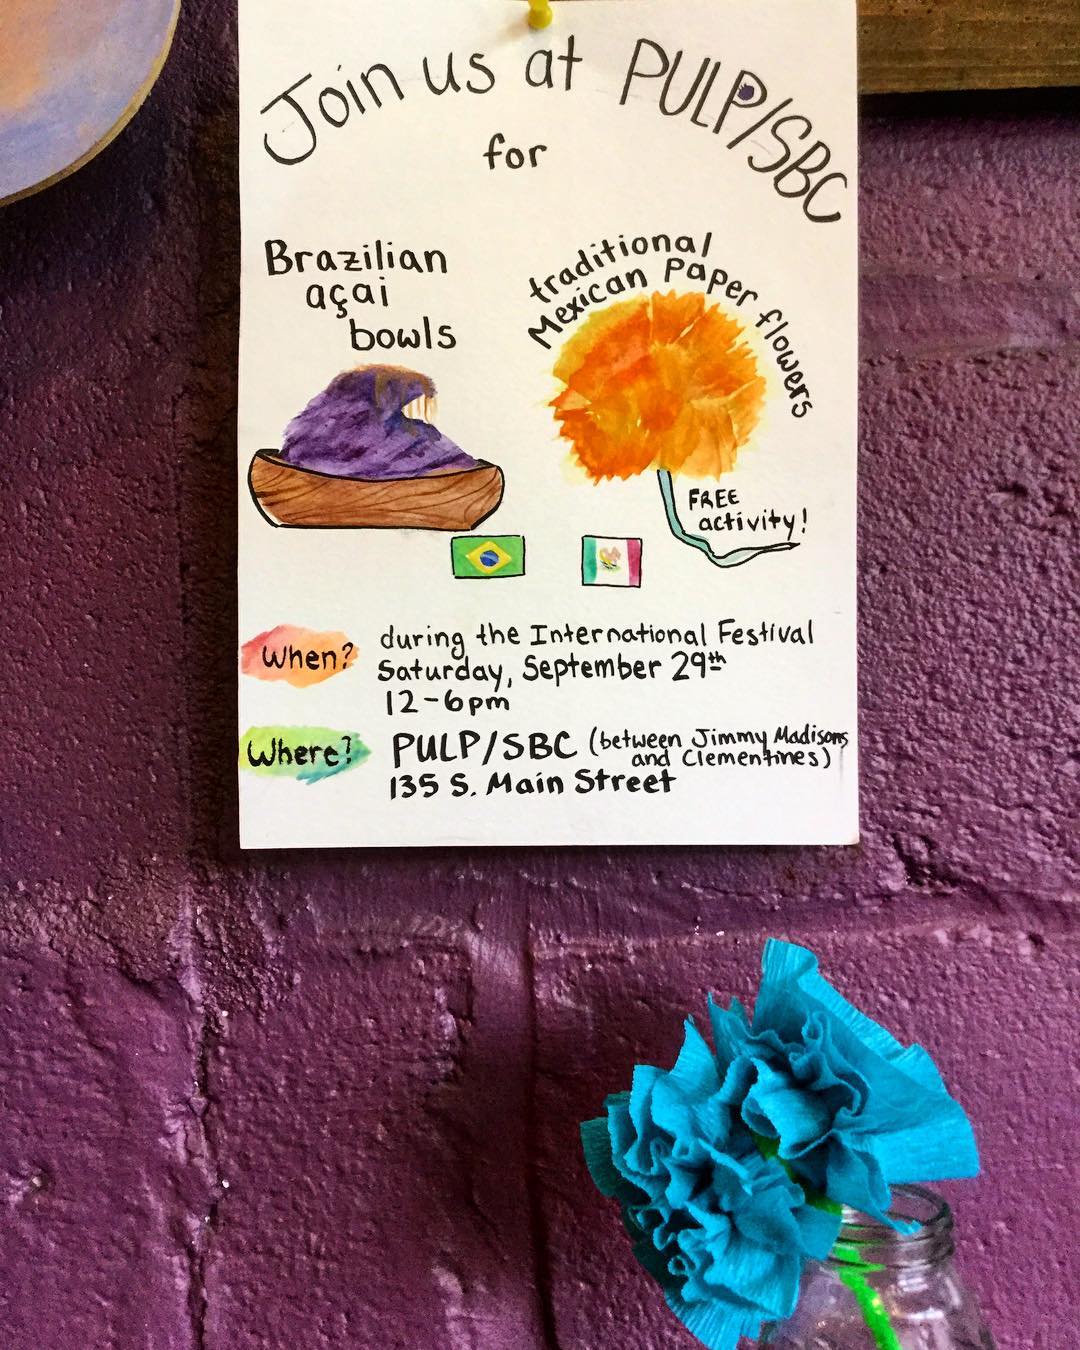 Join us at PULP/SBC
for
Brazilian
açai
bowls
traditional
Mexican Paper flowers
FREE
activity!
When?
during the International Festival
Saturday, September 29th
12-6pm
Where?
PULP/SBC (between Jimmy Madisons
and Clementines)
135 S. Main Street